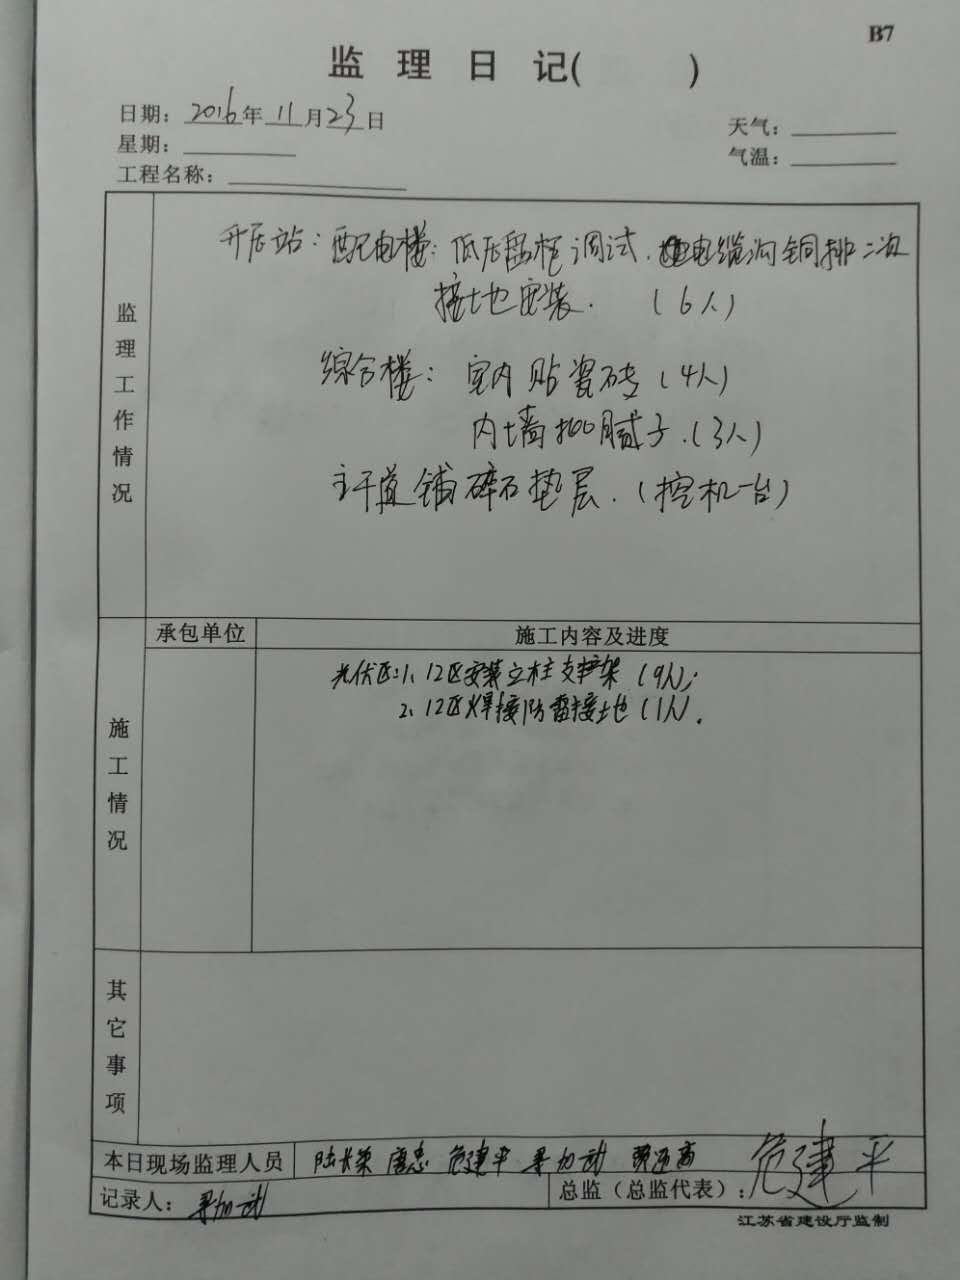 B7
监理日记( )
日期：2016年11月23日
星期：
天气：
气温：
工程名称：
监理工作情况
开压站：配电楼：低压盘柜调试.电缆沟铜排二次
接地安装. (6人)
综合楼：室内贴瓷砖(4人)
内墙批腻子.(3人)
主干道铺碎石垫层.(挖机一台)
承包单位 施工内容及进度
施工情况
光伏区:1、12区安装立柱支撑架(9人);
2、12区焊接防雷接地(1人).
其它事项
本日现场监理人员 陆长荣 唐忠 危建平
记录人：
总监（总监代表）：危建平
江苏省建设厅监制